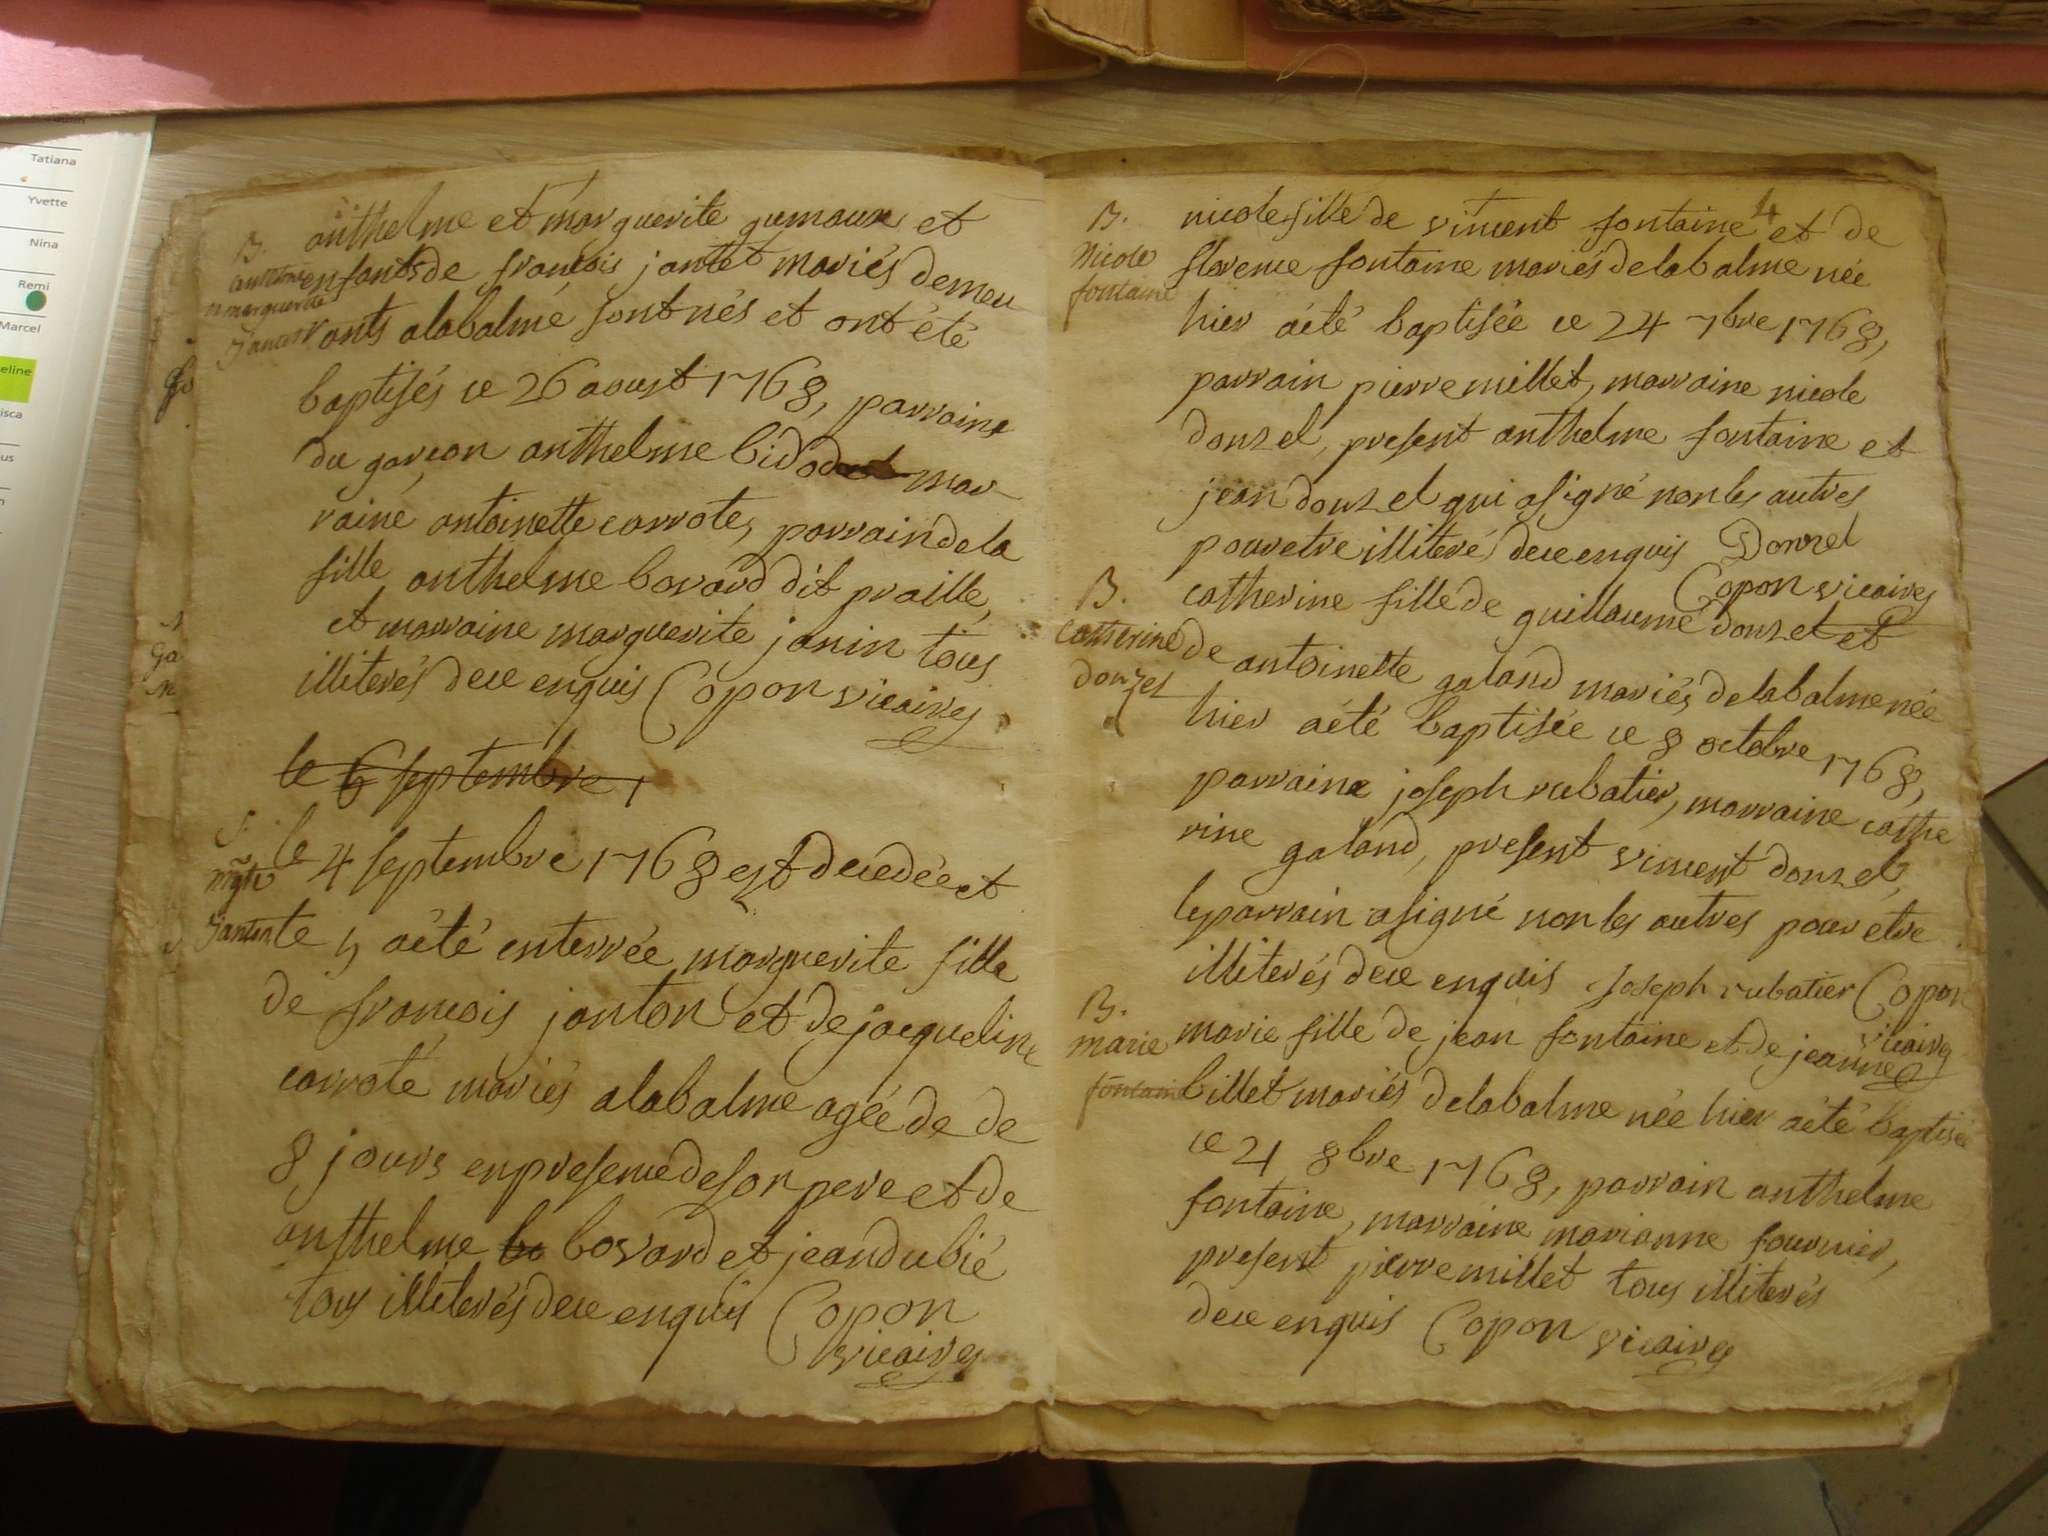 Tatiana
Yvette
Nina
Remi
Marcel
eline
isca
us
B.
anthelme et marguerite gemaux et
enfants de françois jantet mariés demeu
rants alabalme sont nés et ont été
baptisés ce 26 aoust 1768, parraine
du garçon anthelme bidod mar-
raine antoinette carrote, parrain de la
fille anthelme bovard dit praille,
et marraine marguerite janin tous
illiterés de ce enquis Copon vicaire
le 6 septembre,
S.
mgte
Janton
le 4 septembre 1768 est decedée et
le 5 a été enterrée marguerite fille
de françois janton et de jacqueline
carrote mariés alabalme agée de de
8 jours en presence de son pere et de
anthelme bo bovard et jean dubié
tous illiterés de ce enquis Copon
vicaire
4
B.
Nicole
fontaine
nicole fille de vincent fontaine et de
florence fontaine mariés de labalme née
hier a été baptisée ce 24 7bre 1768,
parrain pierre millet, marraine nicole
donzel, present anthelme fontaine et
jean donzel qui a signé non les autres
pour etre illiteré de ce enquis Donzel
Copon vicaire
B.
Catherine
donzel
catherine fille de guillaume donzel et
de antoinette galand mariés de labalme née
hier a été baptisée ce 8 octobre 1768,
parraine joseph rubatier, marraine cathe
rine galand, present vincent donzel,
le parrain a signé non les autres pour etre
illiterés de ce enquis Joseph rubatier Copon
vicaire
B.
marie
fontaine
marie fille de jean fontaine et de jeanne
billet mariés de labalme née hier a été baptisée
ce 21 8bre 1768, parrain anthelme
fontaine, marraine marianne fournier,
present pierre millet tous illiterés
de ce enquis Copon vicaire